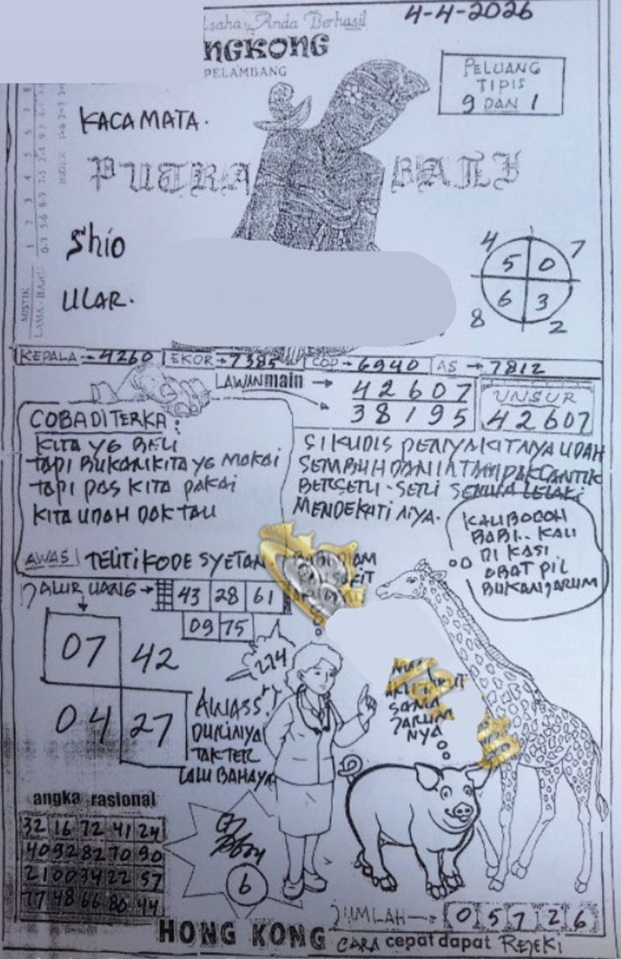 4-4-2026
Anda Berhasil
NGKONG
PELAMBANG
PELUANG
TIPIS
9 DAN 1
KACAMATA.
PUTRA BALI
Shio
ULAR.
4 7
5 0
6 3
8 2
KEPALA → 4260 EKOR → 7385 COP → 6940 AS → 7812
LAWAN main → 42607
38195
UNSUR
42607
COBA DITERKA:
KITA YG BELI
TAPI BUKAN KITA YG MAKAI
TAPI PAS KITA PAKAI
KITA UDAH DAK TAU
SI KUDIS PENYAKITNYA UDAH
SEMBUH DAN IA TAMPAK CANTIK
BERSERI-SERI SEMUA LELAKI
MENDEKATI NYA.
KAU BODOH
BABI.. KAU
DI KASI
OBAT PIL
BUKAN JARUM
AWAS! TELITI KODE SYETAN
JALUR UANG → 43 28 61
09 75
07 42
04 27
224
AWASS
DURINYA
TAK TER
LALU BAHAYA
SAMA
JARUM
NYA
angka rasional
32 16 72 41 24
40 92 82 70 90
21 00 34 22 57
77 48 66 86 44
6
JUMLAH → 0 5 7 2 6
HONG KONG CARA cepat dapat REJEKI